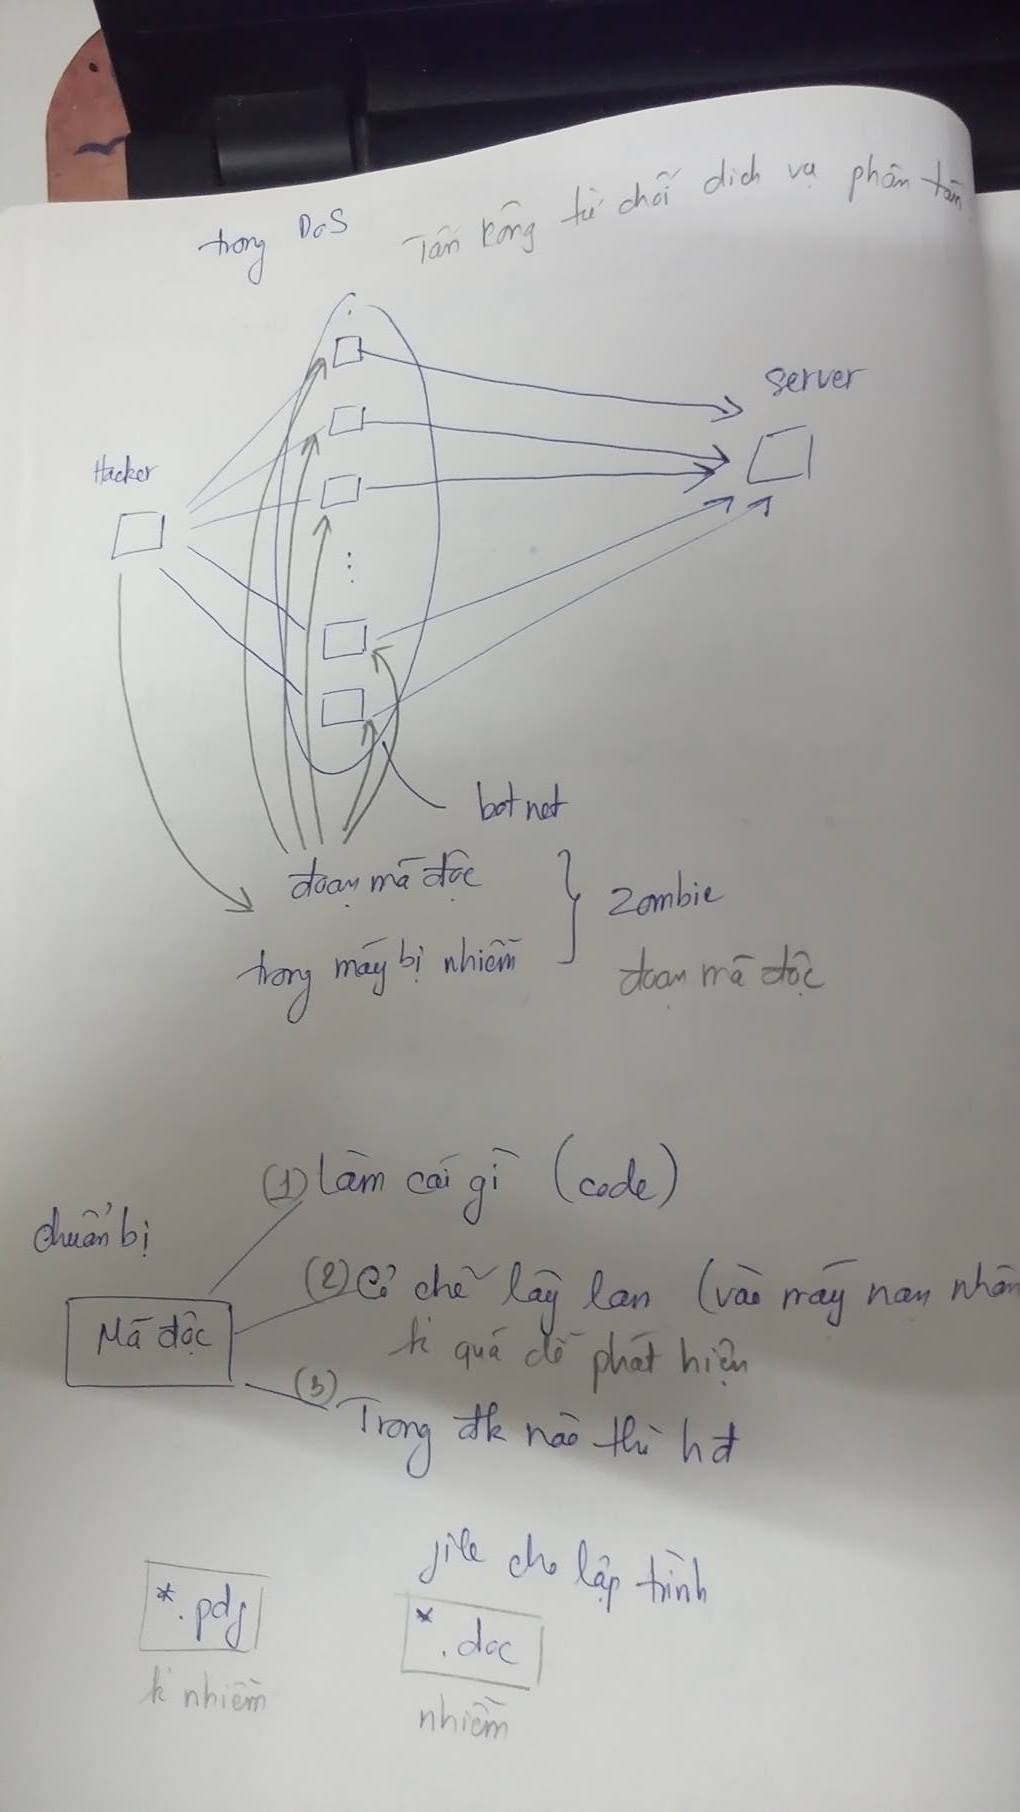 trong DoS Tấn công từ chối dịch vụ phân tán
Server
Hacker
botnet
đoạn mã độc
trong máy bị nhiễm
Zombie
đoạn mã độc
chuẩn bị
Mã độc
(1) Làm cái gì (code)
(2) Cơ chế lây lan (vào máy nạn nhân
k quá dễ phát hiện
(3) Trong đk nào thì hđ
file cho lập trình
*.pdf
*.doc
k nhiễm
nhiễm